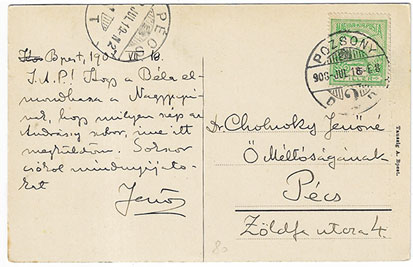 Bpest, 190 VII 18.
I.A.P! Hogy a Béla el-
mondhassa a Nagypapá-
nak, hogy milyen szép az
Andrássy szobor, ime itt
megküldöm. Sokszor
csókol mindnyájato-
kat
Jenő
PÉCS
JUL 19
POZSONY
908 JUL 18
Dr. Cholnoky Jenőné
Ő Méltóságának
Pécs
Zöldfa utca 4.
Taussig A. Bpest.
80